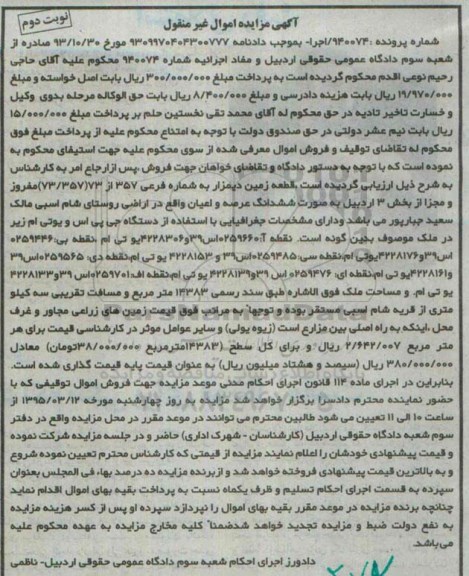 نوبت دوم
آگهی مزایده اموال غیر منقول
شماره پرونده :۹۴۰۰۷۴/اجرا- بموجب دادنامه ۹۳۰۹۹۷۰۴۰۴۳۰۰۷۷۷ مورخ ۹۳/۱۰/۳۰ صادره از
شعبه سوم دادگاه عمومی حقوقی اردبیل و مفاد اجرائیه شماره ۹۴۰۰۷۴ محکوم علیه آقای حاجی
رحیم نوعی اقدم محکوم گردیده است به پرداخت مبلغ ۳۰۰/۰۰۰/۰۰۰ ریال بابت اصل خواسته و مبلغ
۱۹/۹۷۰/۰۰۰ ریال بابت هزینه دادرسی و مبلغ ۸/۴۰۰/۰۰۰ ریال بابت حق الوکاله مرحله بدوی وکیل
و خسارت تاخیر تادیه در حق محکوم له آقای محمد تقی نخستین حلم بر پرداخت مبلغ ۱۵/۰۰۰/۰۰۰
ریال بابت نیم عشر دولتی در حق صندوق دولت با توجه به امتناع محکوم علیه از پرداخت مبلغ فوق
محکوم له تقاضای توقیف و فروش اموال معرفی شده از سوی محکوم علیه جهت استیفای محکوم به
نموده است که با توجه به دستور دادگاه و تقاضای خواهان جهت فروش ،پس ازارجاع امر به کارشناس
به شرح ذیل ارزیابی گردیده است .قطعه زمین دیمزار به شماره فرعی ۳۵۷ از ۷۳(۷۳/۳۵۷)مفروز
و مجزا از بخش ۳ اردبیل به صورت ششدانگ عرصه و اعیان واقع در اراضی روستای شام اسبی مالک
سعید جبارپور می باشد ودارای مشخصات جغرافیایی با استفاده از دستگاه جی پی اس و یوتی ام زیر
در ملک موصوف بدین گونه است. نقطه آ:۰۲۵۹۶۶۰اس۳۹و۴۲۲۸۳۰۶یو تی ام ،نقطه بی:۰۲۵۹۴۴۶
اس۳۹و۴۲۲۸۱۷۶یوتی ام،نقطه سی:۰۲۵۹۴۸۵اس۳۹ و ۴۲۲۸۱۵۳ یو تی ام،نقطه دی: ۰۲۵۹۵۶۵اس۳۹
و۴۲۲۸۱۶۱یو تی ام،نقطه ای: ۰۲۵۹۴۷۶ اس ۳۹و۴۲۲۸۱۳۹ یو تی ام،نقطه اف:۰۲۵۹۷۰۱اس ۳۹و۴۲۲۸۱۳۳
یو تی ام. و مساحت ملک فوق الاشاره طبق سند رسمی ۱۴۳۸۳ متر مربع و مسافت تقریبی سه کیلو
متری از قریه شام اسبی مستقر بوده و توجها به مراتب فوق قیمت زمین های زراعی مجاور و غرف
محل ،اینکه به راه اصلی بین مزارع است (زیوه یولی) و سایر عوامل موثر در کارشناسی قیمت برای هر
متر مربع ۲/۶۴۲/۰۰۷ ریال و برای کل سطح (۱۴۳۸۳مترمربع ۳۸/۰۰۰/۰۰۰تومان) معادل
۳۸۰/۰۰۰/۰۰۰ ریال (سیصد و هشتاد میلیون ریال) به عنوان قیمت پایه قیمت گذاری شده است.
بنابراین در اجرای ماده ۱۱۴ قانون اجرای احکام مدنی موعد مزایده جهت فروش اموال توقیفی که با
حضور نماینده محترم دادسرا برگزار خواهد شد مزایده به روز چهارشنبه مورخه ۱۳۹۵/۰۳/۱۲ از
ساعت ۱۰ الی ۱۱ تعیین می شود طالبین محترم می توانند در موعد مقرر در محل مزایده واقع در دفتر
سوم شعبه دادگاه حقوقی اردبیل (کارشناسان - شهرک اداری) حاضر و در جلسه مزایده شرکت نموده
و قیمت پیشنهادی خودشان را اعلام نمایند مزایده از قیمتی که کارشناس محترم تعیین نموده شروع
و به بالاترین قیمت پیشنهادی فروخته خواهد شد و ازبرنده مزایده ده درصد بها، فی المجلس بعنوان
سپرده به قسمت اجرای احکام تسلیم و ظرف یکماه نسبت به پرداخت بقیه بهای اموال اقدام نماید
چنانچه برنده مزایده در موعد مقرر بقیه بهای اموال را نپردازد سپرده او پس از کسر هزینه مزایده
به نفع دولت ضبط و مزایده تجدید خواهد شدضمنا کلیه مخارج مزایده به عهده محکوم علیه
می باشد.
دادورز اجرای احکام شعبه سوم دادگاه عمومی حقوقی اردبیل- ناظمی